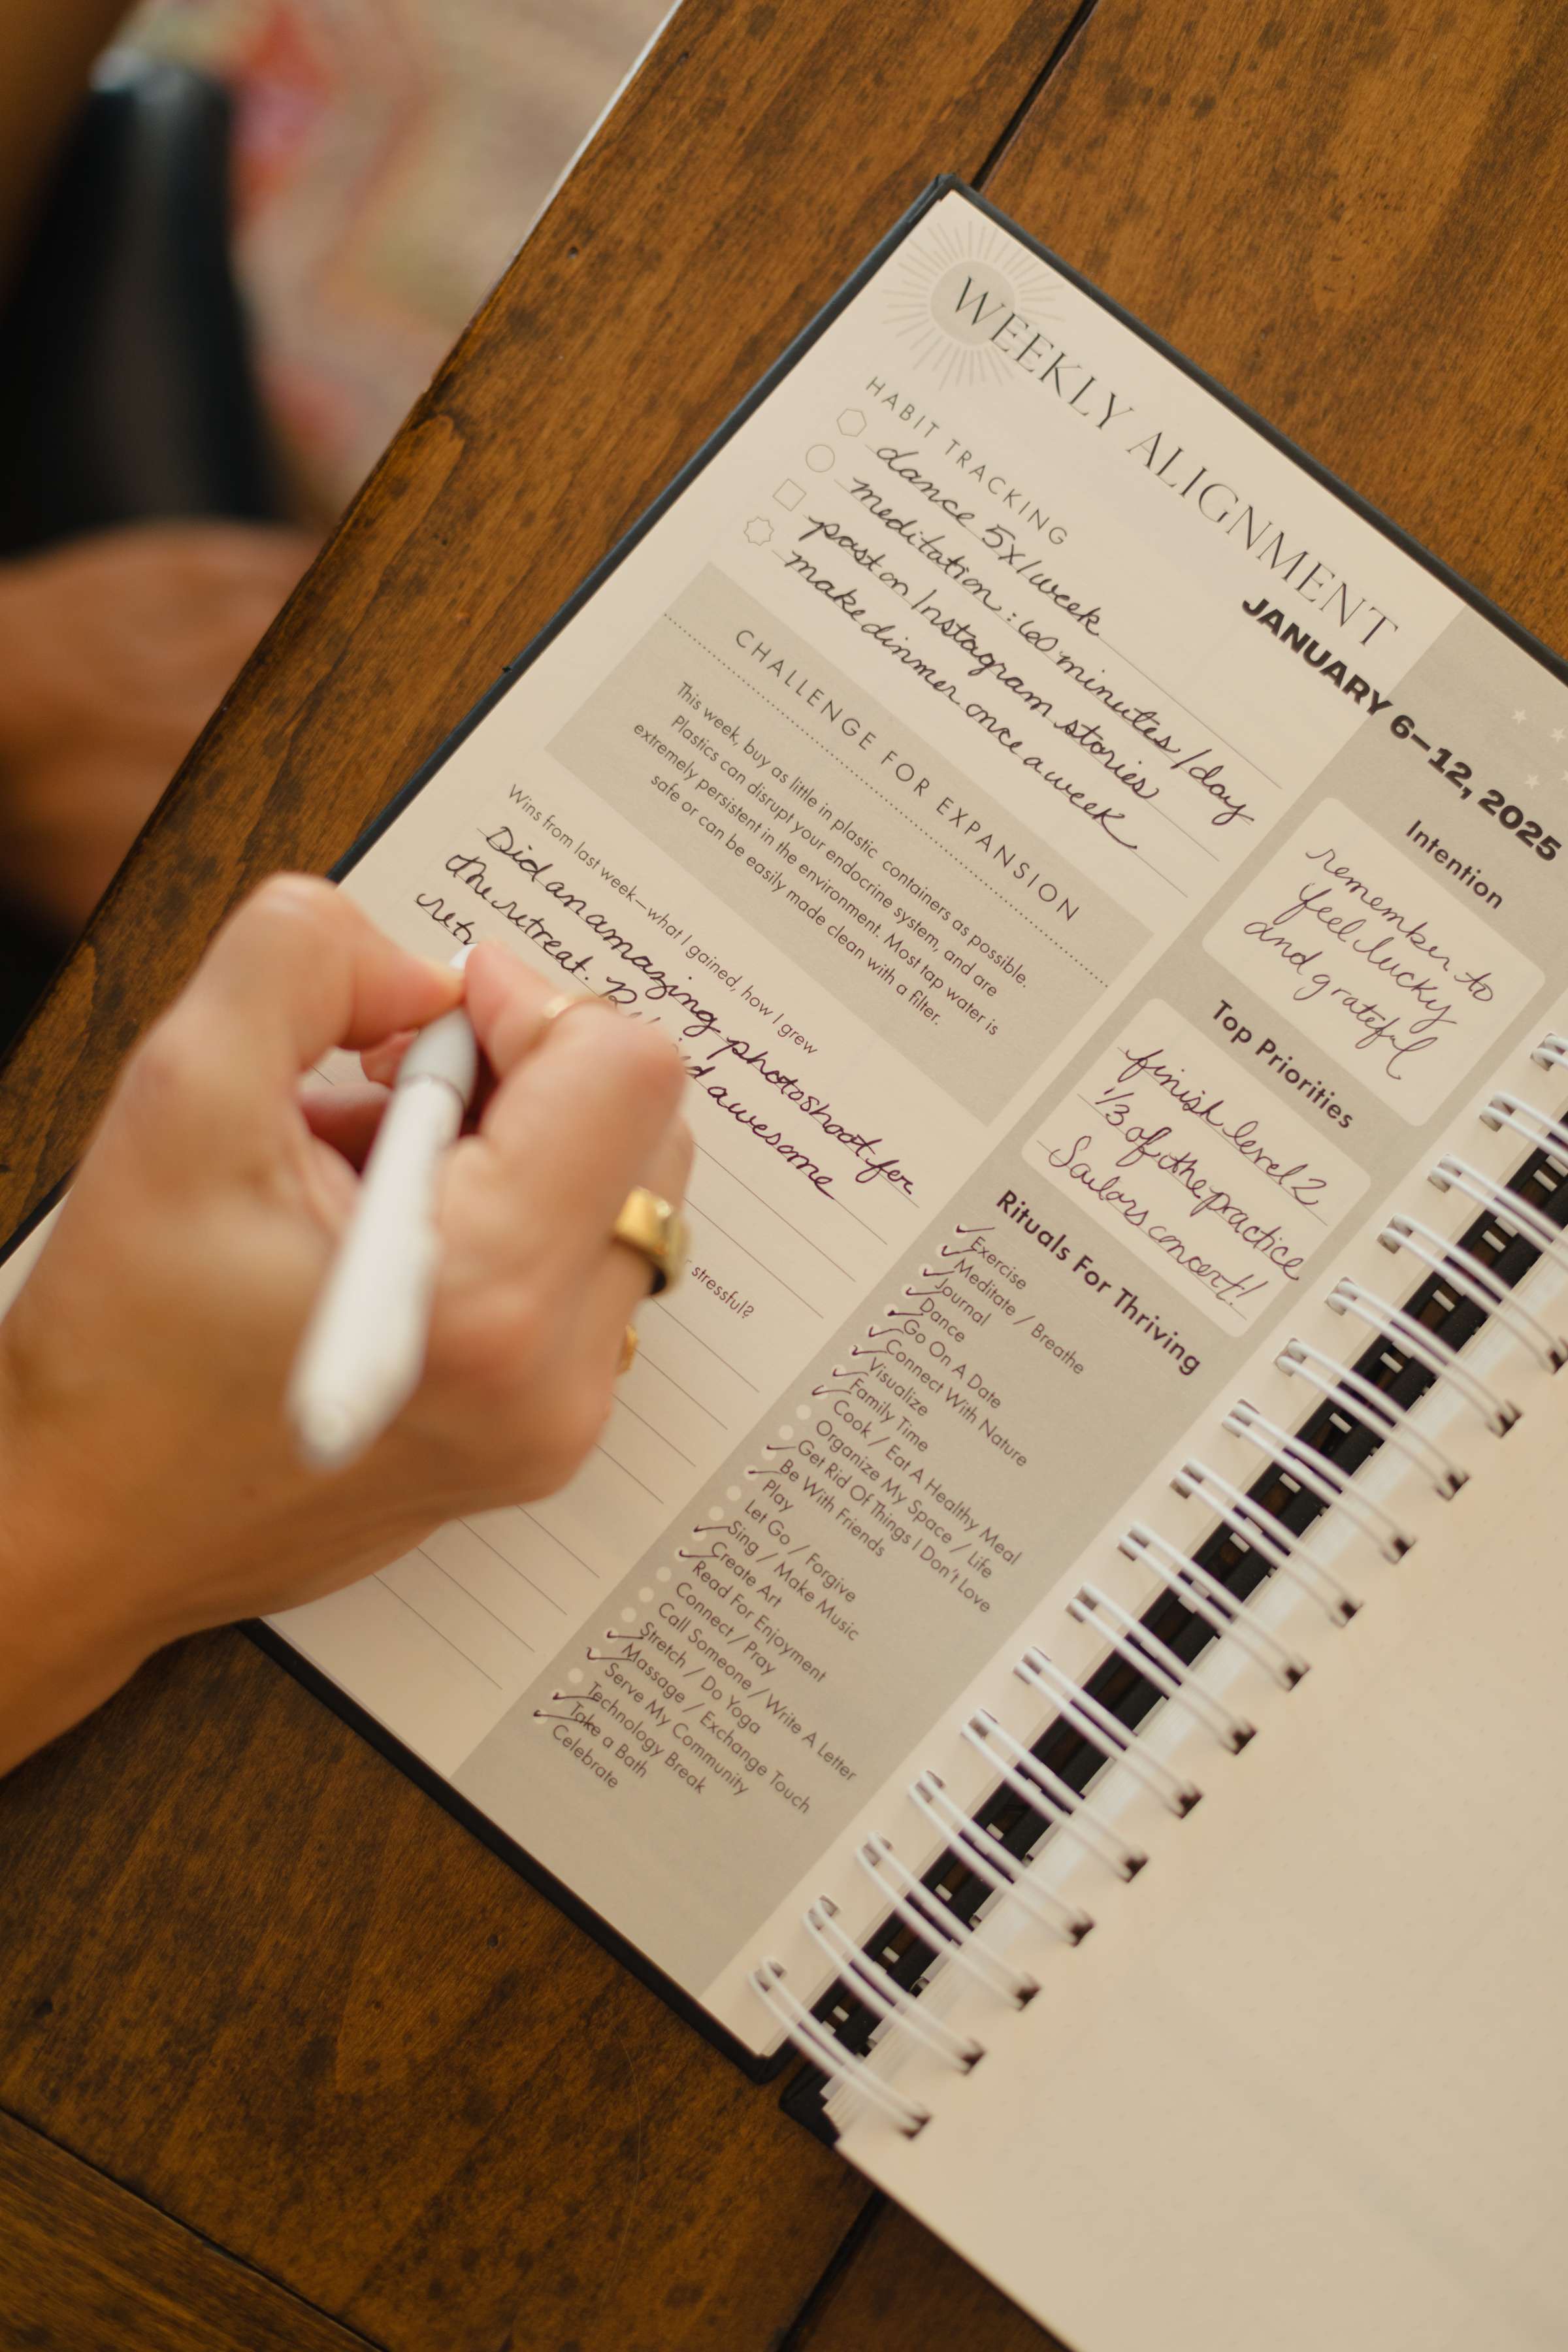 WEEKLY ALIGNMENT
JANUARY 6–12, 2025
HABIT TRACKING
dance 5x/week
meditation: 60 minutes/day
post on Instagram stories
make dinner once a week
CHALLENGE FOR EXPANSION
This week, buy as little in plastic containers as possible.
Plastics can disrupt your endocrine system, and are
extremely persistent in the environment. Most tap water is
safe or can be easily made clean with a filter.
Wins from last week—what I gained, how I grew
Did an amazing photoshoot for
the retreat.
awesome
stressful?
Intention
remember to
feel lucky
and grateful
Top Priorities
finish level 2
1/3 of the practice
Sailors concert!
Rituals For Thriving
Exercise
Meditate / Breathe
Journal
Dance
Go On A Date
Connect With Nature
Visualize
Family Time
Cook / Eat A Healthy Meal
Organize My Space / Life
Get Rid Of Things I Don't Love
Be With Friends
Play
Let Go / Forgive
Sing / Make Music
Create Art
Read For Enjoyment
Connect / Pray
Call Someone / Write A Letter
Stretch / Do Yoga
Massage / Exchange Touch
Serve My Community
Technology Break
Take a Bath
Celebrate